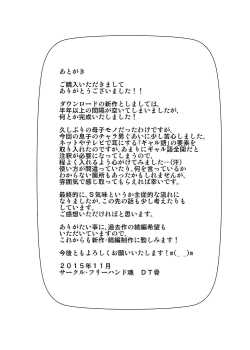 あとがき
ご購入いただきまして
ありがとうございました！！
ダウンロードの新作としましては、
半年以上の間隔が空いてしまいましたが、
何とか完成いたしました！
久しぶりの母子モノだったわけですが、
今回の息子のチャラ男ぐあいに少し苦心しました。
ネットやテレビで耳にする「ギャル語」の要素を
取り入れたのですが、あまりにギャル語全開だと
注釈が必要になってしまうので、
程よく入れるよう心がけてみました…（汗）
使い方が間違っていたり、何を言っているか
わからない箇所もあったかもしれませんが、
雰囲気で感じ取ってもらえれば幸いです。
最終的に、Ｓ気味というか主従的な流れに
なりましたが、この先の話も少し考えています。
ご感想いただければと思います。
ありがたい事に、過去作の続編希望も
いただいていますので、
これからも新作・続編制作に勤しみます！
今後ともよろしくお願いいたします！m(_ _)m
２０１５年１１月
サークル・フリーハンド魂　ＤＴ